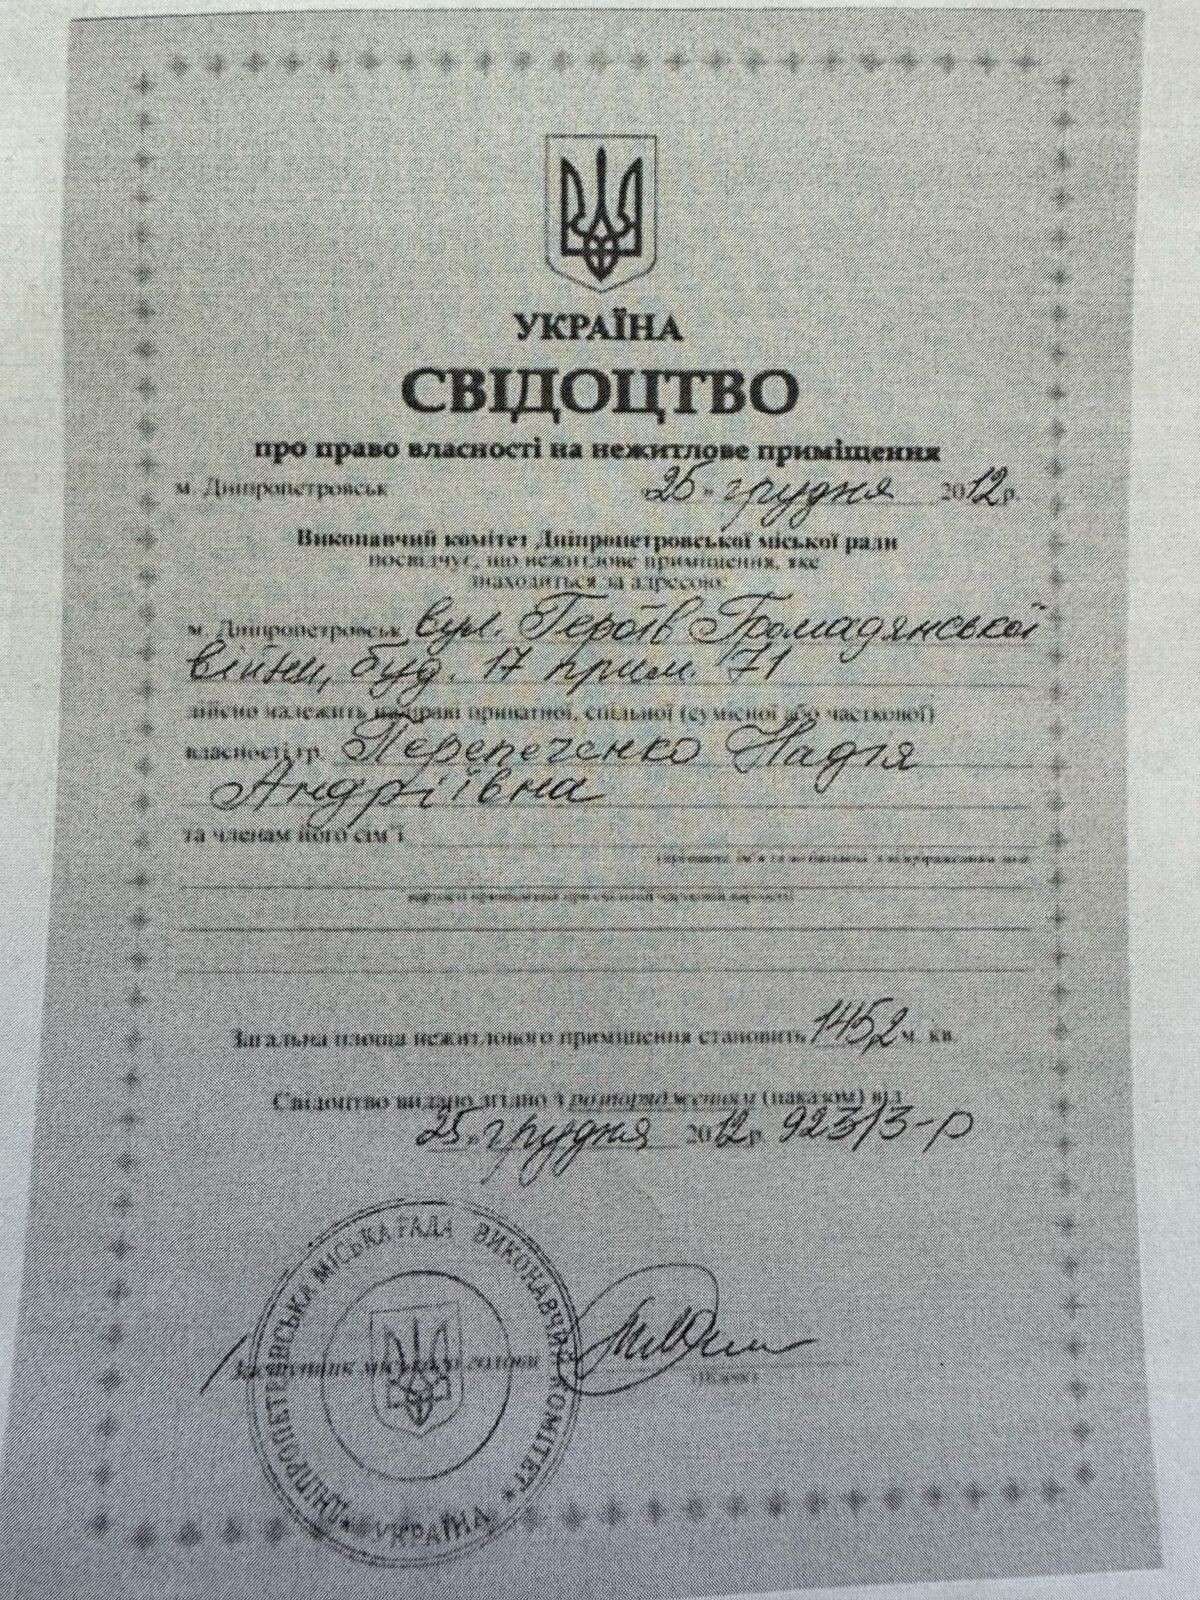 УКРАЇНА
СВІДОЦТВО
про право власності на нежитлове приміщення
м. Дніпропетровськ "25" грудня 2012 р.
Виконавчий комітет Дніпропетровської міської ради
посвідчує, що нежитлове приміщення, яке
знаходиться за адресою:
м. Дніпропетровськ вул. Героїв Громадянської
війни, буд. 17 прим. 71
дійсно належить на праві приватної, спільної (сумісної або часткової)
власності гр. Перепеченко Надія
Андріївна
та членам його сім'ї
Загальна площа нежитлового приміщення становить 145,2 м. кв.
Свідоцтво видано згідно з розпорядженням (наказом) від
"25" грудня 2012 р. 923/3-р
ДНІПРОПЕТРОВСЬКА МІСЬКА РАДА ВИКОНАВЧИЙ КОМІТЕТ
Заступник міського голови
* УКРАЇНА *